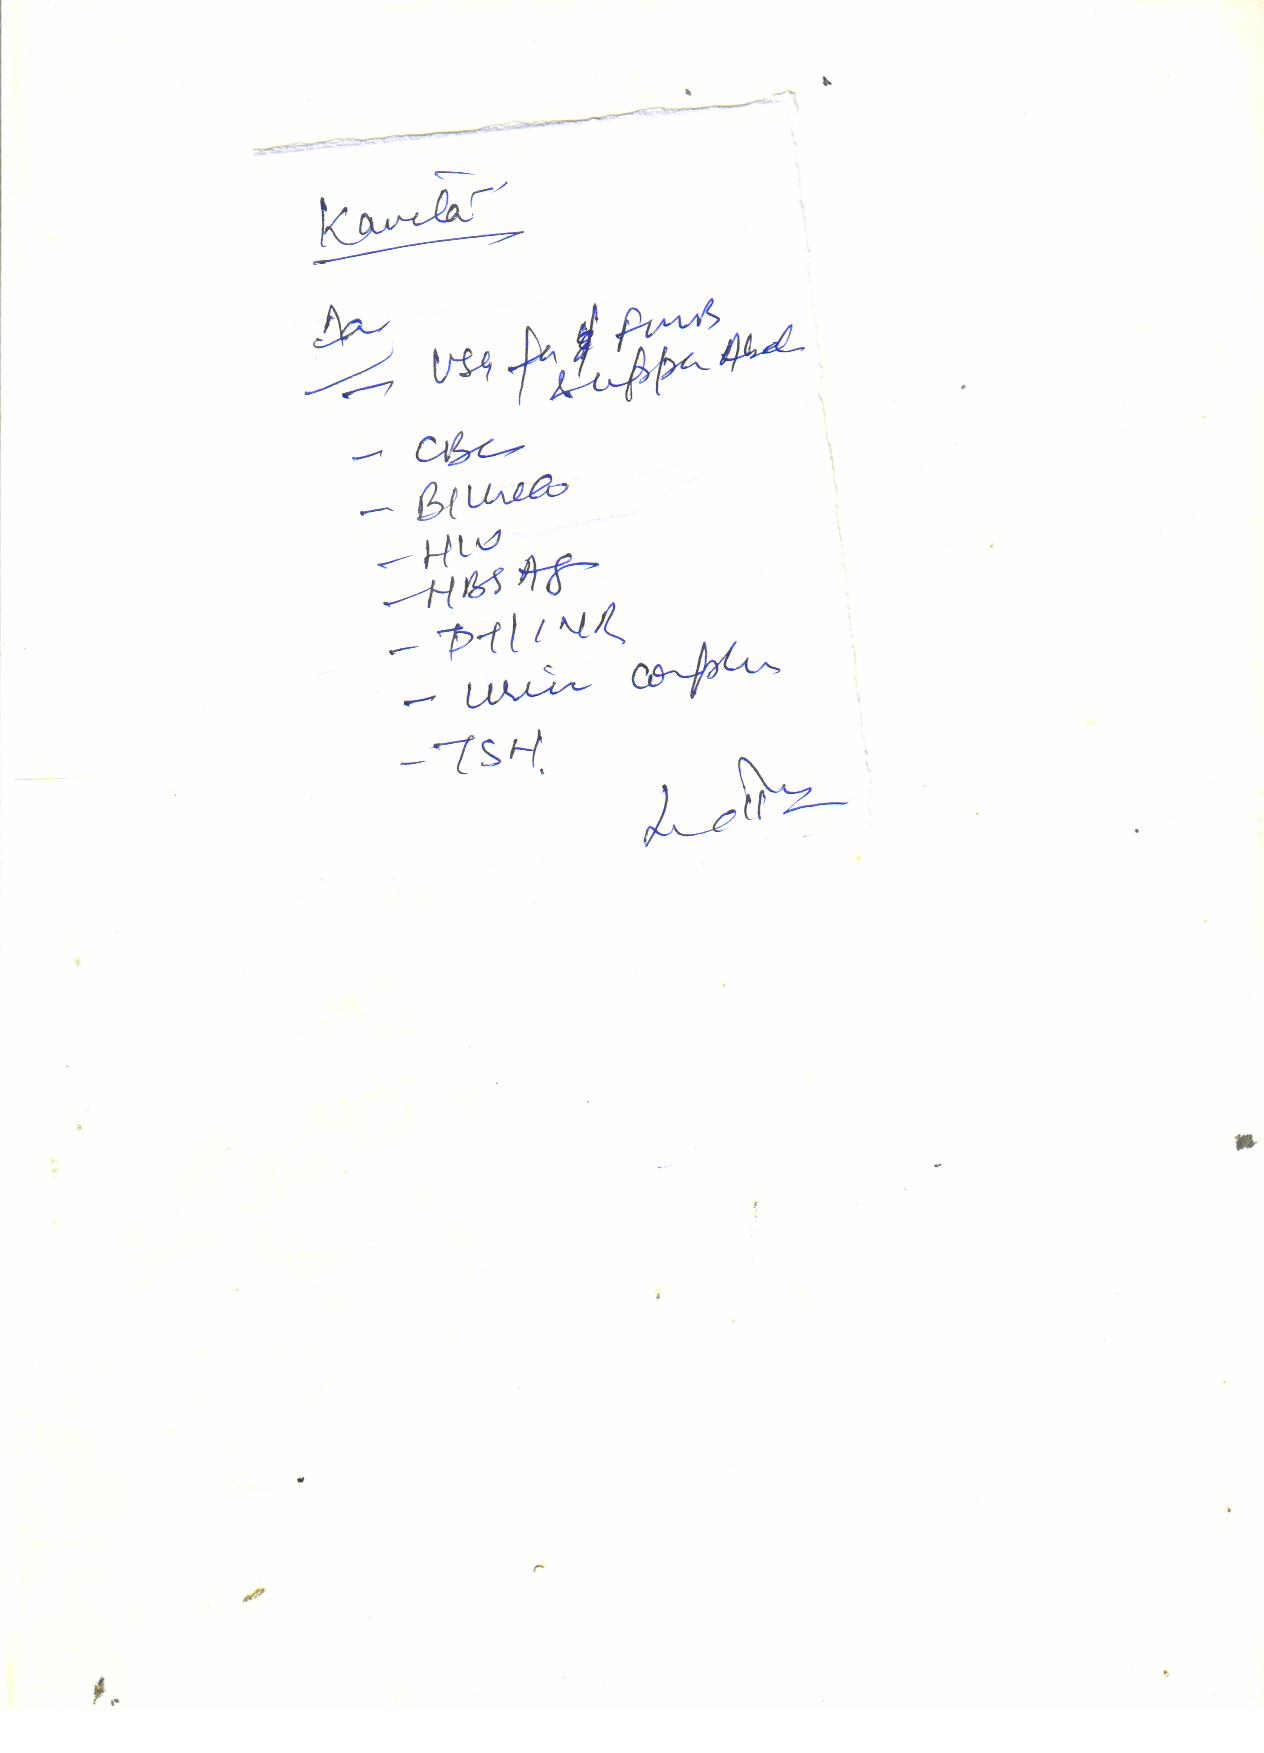 Kavita
Da
- USG for FWB
& upper Abd
- CBC
- HIV
- HBSAg
- PT/INR
- urine complete
- TSH.